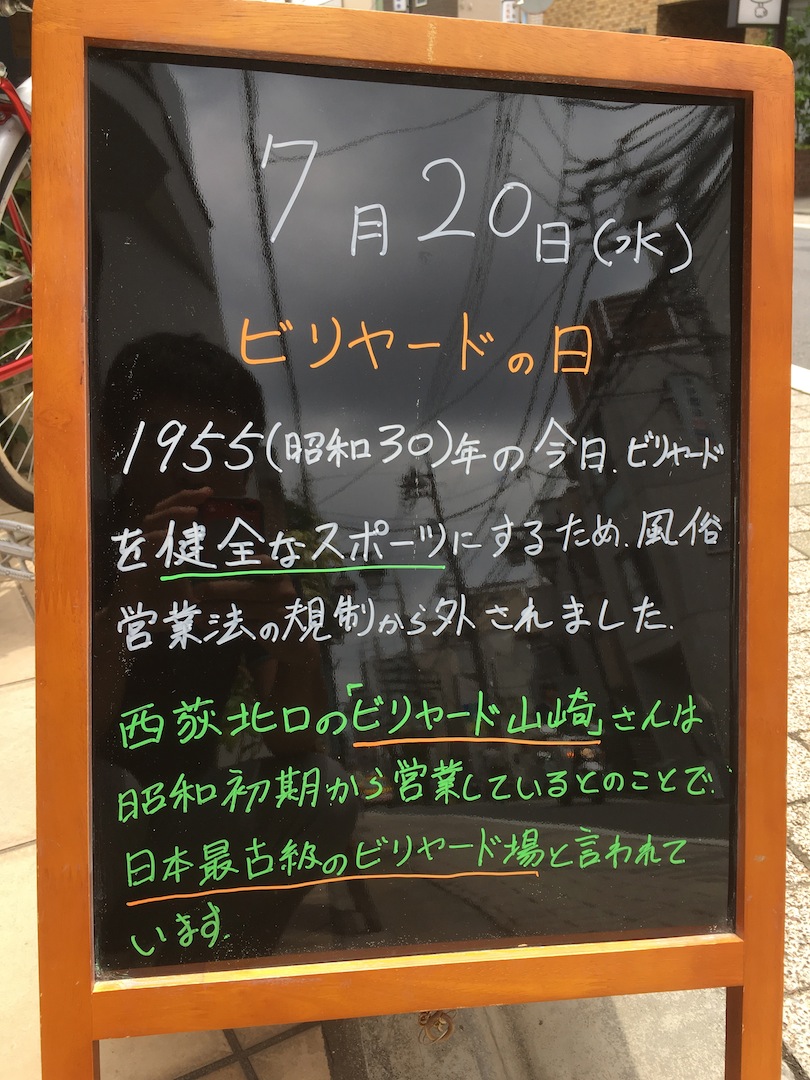 7月20日(水)
ビリヤードの日
1955(昭和30)年の今日、ビリヤード
を健全なスポーツにするため、風俗
営業法の規制から外されました。
西荻北口の「ビリヤード山崎」さんは
昭和初期から営業しているとのことで、
日本最古級のビリヤード場と言われて
います。